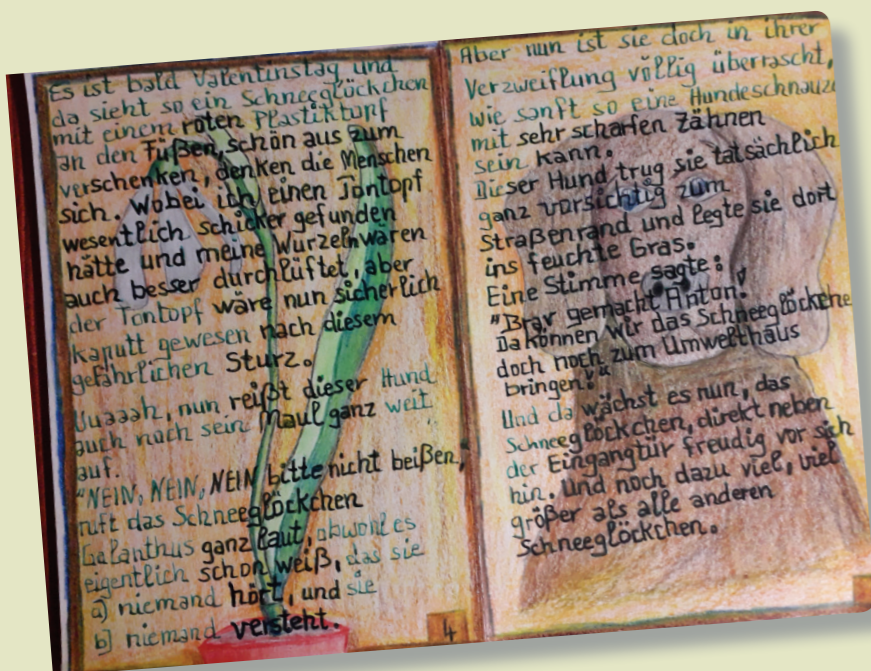 Es ist bald Valentinstag und
da sieht so ein Schneeglöckchen
mit einem roten Plastiktopf
an den Füßen, schön aus zum
verschenken, denken die Menschen
sich. Wobei ich einen Tontopf
wesentlich schicker gefunden
hätte und meine Wurzeln wären
auch besser durchlüftet, aber
der Tontopf wäre nun sicherlich
kaputt gewesen nach diesem
gefährlichen Sturz.
Uuaaah, nun reißt dieser Hund
auch noch sein Maul ganz weit
auf.
"NEIN, NEIN, NEIN bitte nicht beißen,"
ruft das Schneeglöckchen
Galanthus ganz laut, obwohl es
eigentlich schon weiß, das sie
a) niemand hört, und sie
b) niemand versteht.
4
Aber nun ist sie doch in ihrer
Verzweiflung völlig überrascht,
wie sanft so eine Hundeschnauze
mit sehr scharfen Zähnen
sein kann.
Dieser Hund trug sie tatsächlich
ganz vorsichtig zum
Straßenrand und legte sie dort
ins feuchte Gras.
Eine Stimme sagte:
"Brav gemacht Anton!
Da können wir das Schneeglöckche
doch noch zum Umwelthaus
bringen!"
Und da wächst es nun, das
Schneeglöckchen, direkt neben
der Eingangtür freudig vor sich
hin. Und noch dazu viel, viel
größer als alle anderen
Schneeglöckchen.